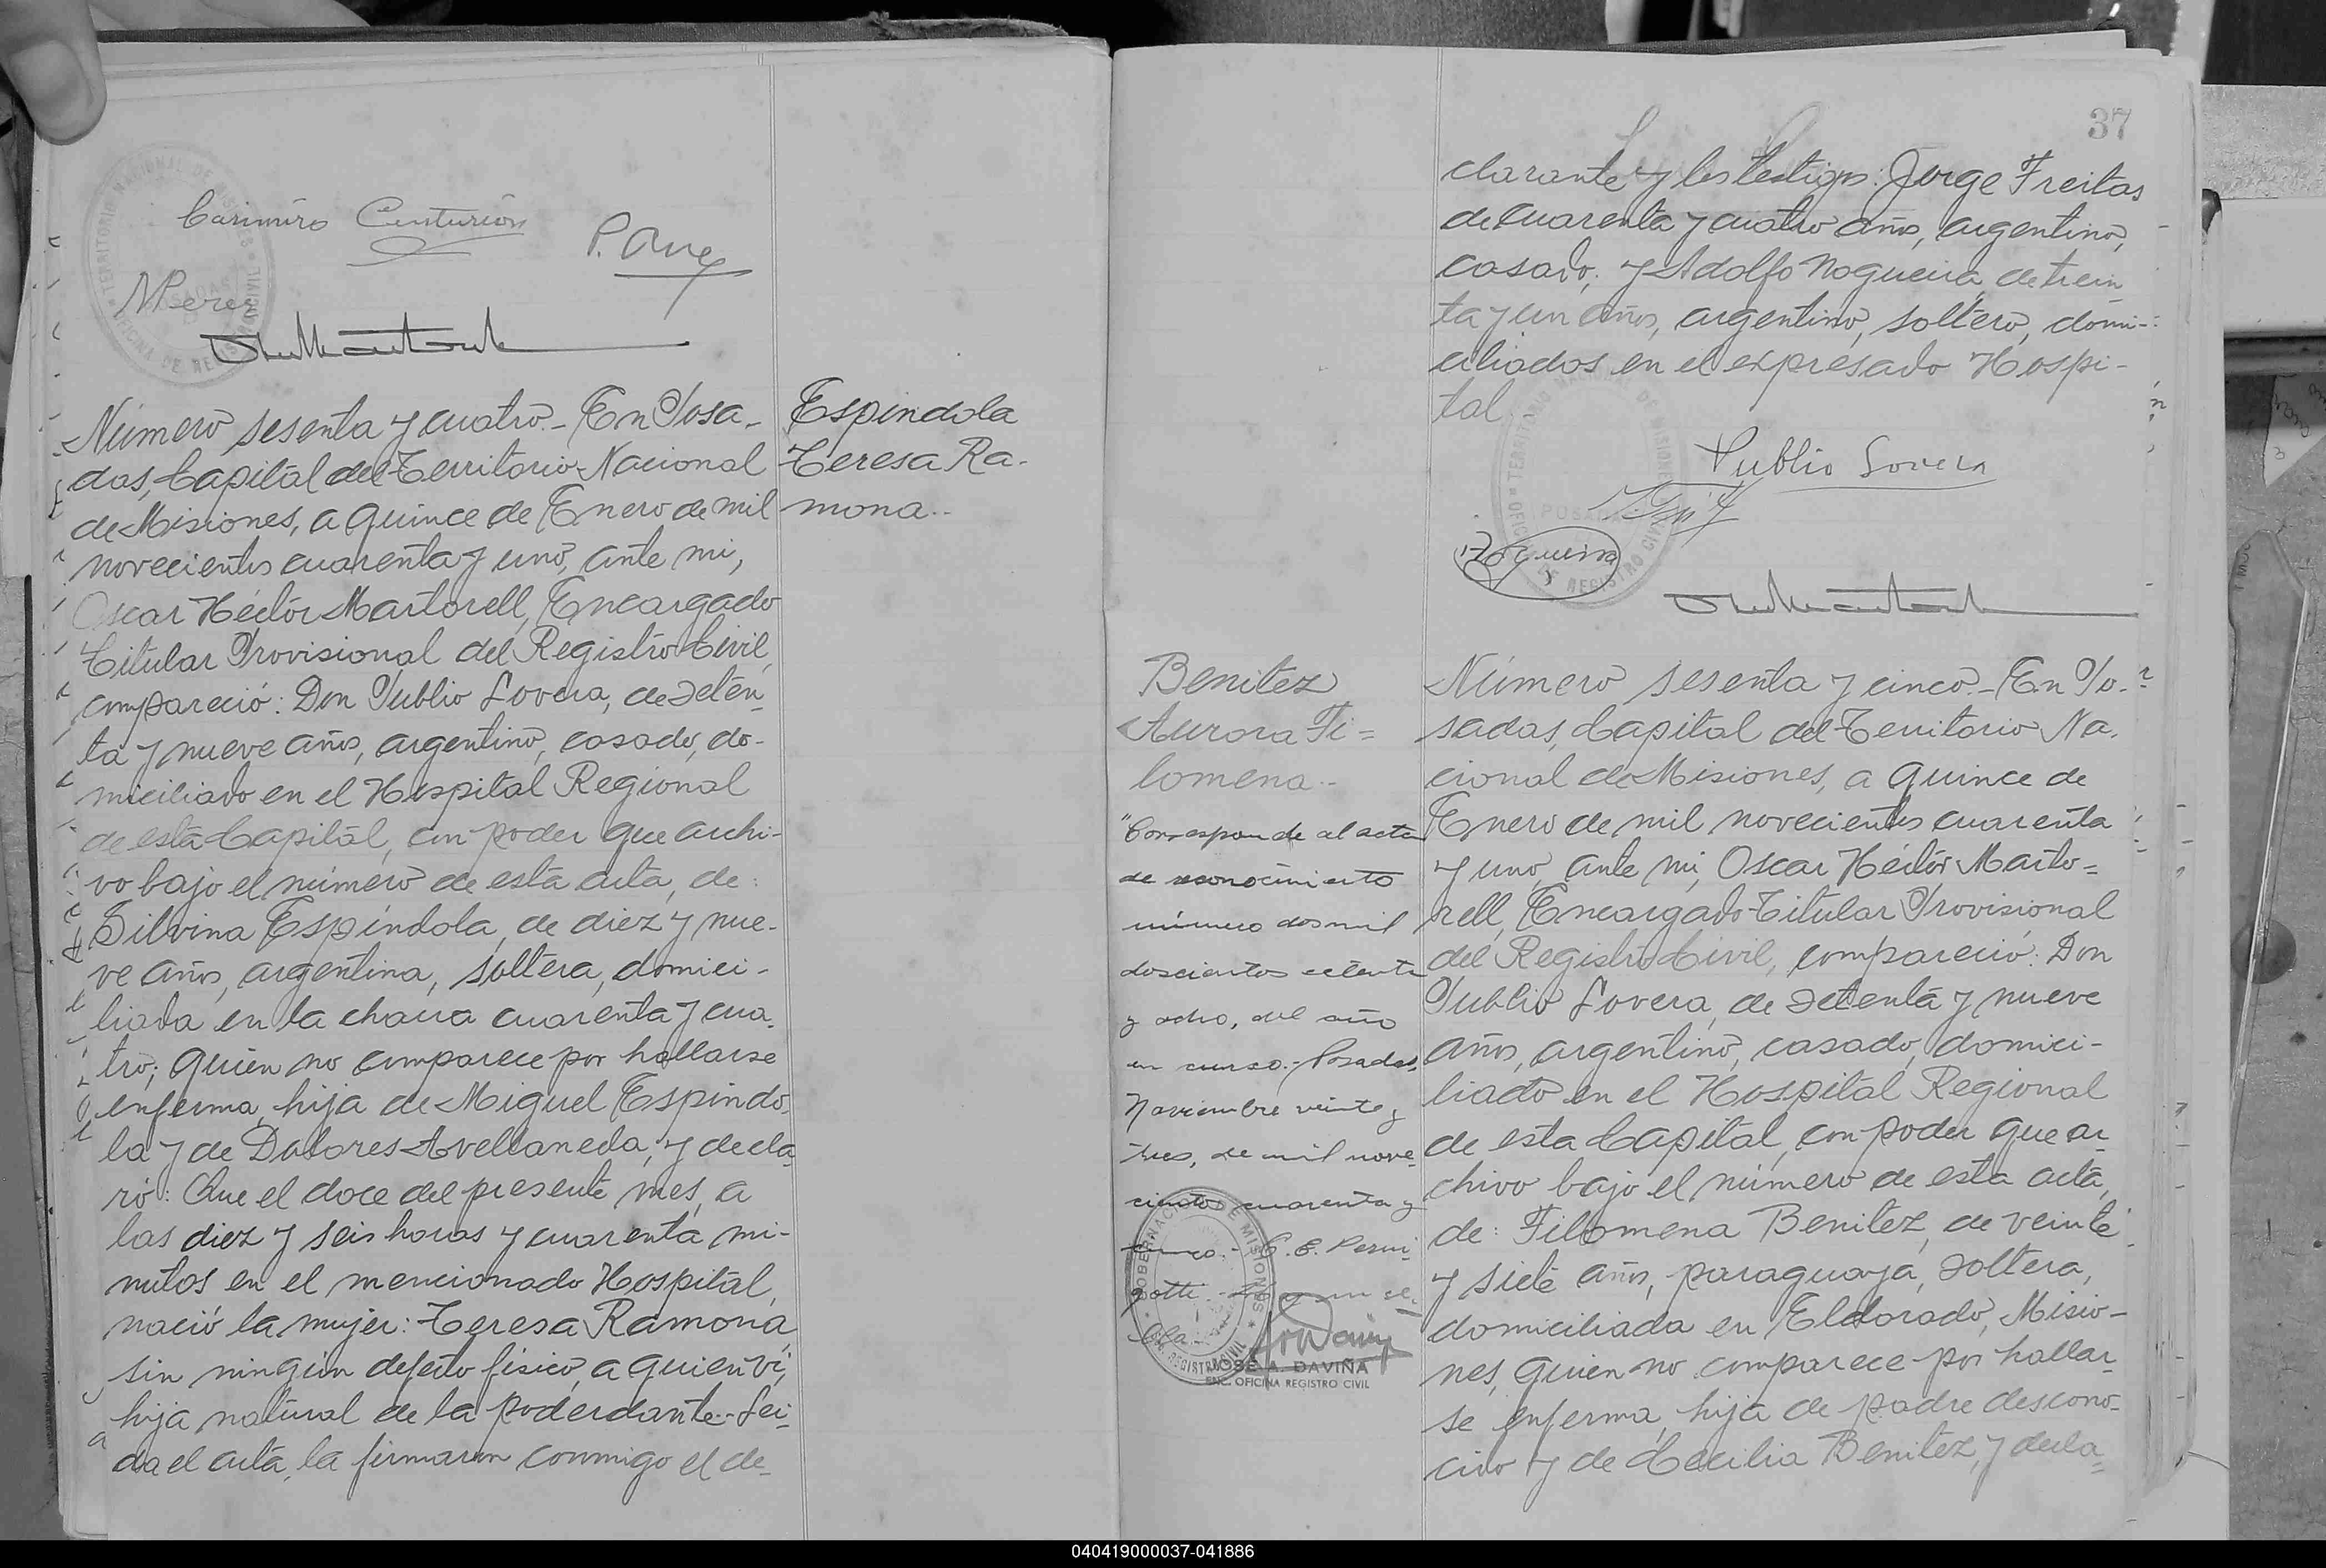 Casimiro Centurión
MPerez
Número sesenta y cuatro.- En Posa-
das, Capital del Territorio Nacional
de Misiones, a quince de Enero de mil
novecientos cuarenta y uno, ante mi,
Oscar Héctor Martorell, Encargado
Titular Provisional del Registro Civil,
compareció: Don Publio Lovera, de seten-
ta y nueve años, argentino, casado, do-
miciliado en el Hospital Regional
de esta Capital, con poder que archi-
vo bajo el número de esta acta, de:
Silvina Espíndola, de diez y nue-
ve años, argentina, soltera, domici-
liada en la chacra cuarenta y cua-
tro; quien no comparece por hallarse
enferma, hija de Miguel Espíndo-
la y de Dolores Avellaneda; y decla-
ró: Que el doce del presente mes, a
las diez y seis horas y cuarenta mi-
nutos en el mencionado Hospital,
nació la mujer: Teresa Ramona,
sin ningún defecto físico, a quien ví,
hija natural de la poderdante.- Leí-
da el acta, la firmaron conmigo el de-
Espindola
Teresa Ra-
mona..
37
clarante y los testigos: Jorge Freitas
de cuarenta y cuatro años, argentino,
casado; y Adolfo Nogueira, de trein
ta y un años, argentino, soltero, domi-
ciliados en el expresado Hospi-
tal.
Publio Lovera
Nogueira
Benitez
Aurora Fi=
lomena..
"Corresponde al acta
de reconocimiento
número dos mil
doscientos setenta
y ocho, del año
en curso.- Posadas,
Noviembre veinte y
tres, de mil nove-
cientos cuarenta y
cinco.-
GOBERNACION DE MISIONES
REGISTRO CIVIL
JOSE A. DAVIÑA
ENC. OFICINA REGISTRO CIVIL
Número sesenta y cinco.- En Po-
sadas, Capital del Territorio Na-
cional de Misiones, a quince de
Enero de mil novecientos cuarenta
y uno, ante mi, Oscar Héctor Marto=
rell, Encargado Titular Provisional
del Registro Civil, compareció: Don
Publio Lovera, de setenta y nueve
años, argentino, casado, domici-
liado en el Hospital Regional
de esta Capital, con poder que ar-
chivo bajo el número de esta acta,
de: Filomena Benitez, de veinte
y siete años, paraguaya, soltera,
domiciliada en Eldorado, Misio-
nes, quien no comparece por hallar-
se enferma, hija de padre descono-
cido y de Cecilia Benitez, y decla=
040419000037-041886